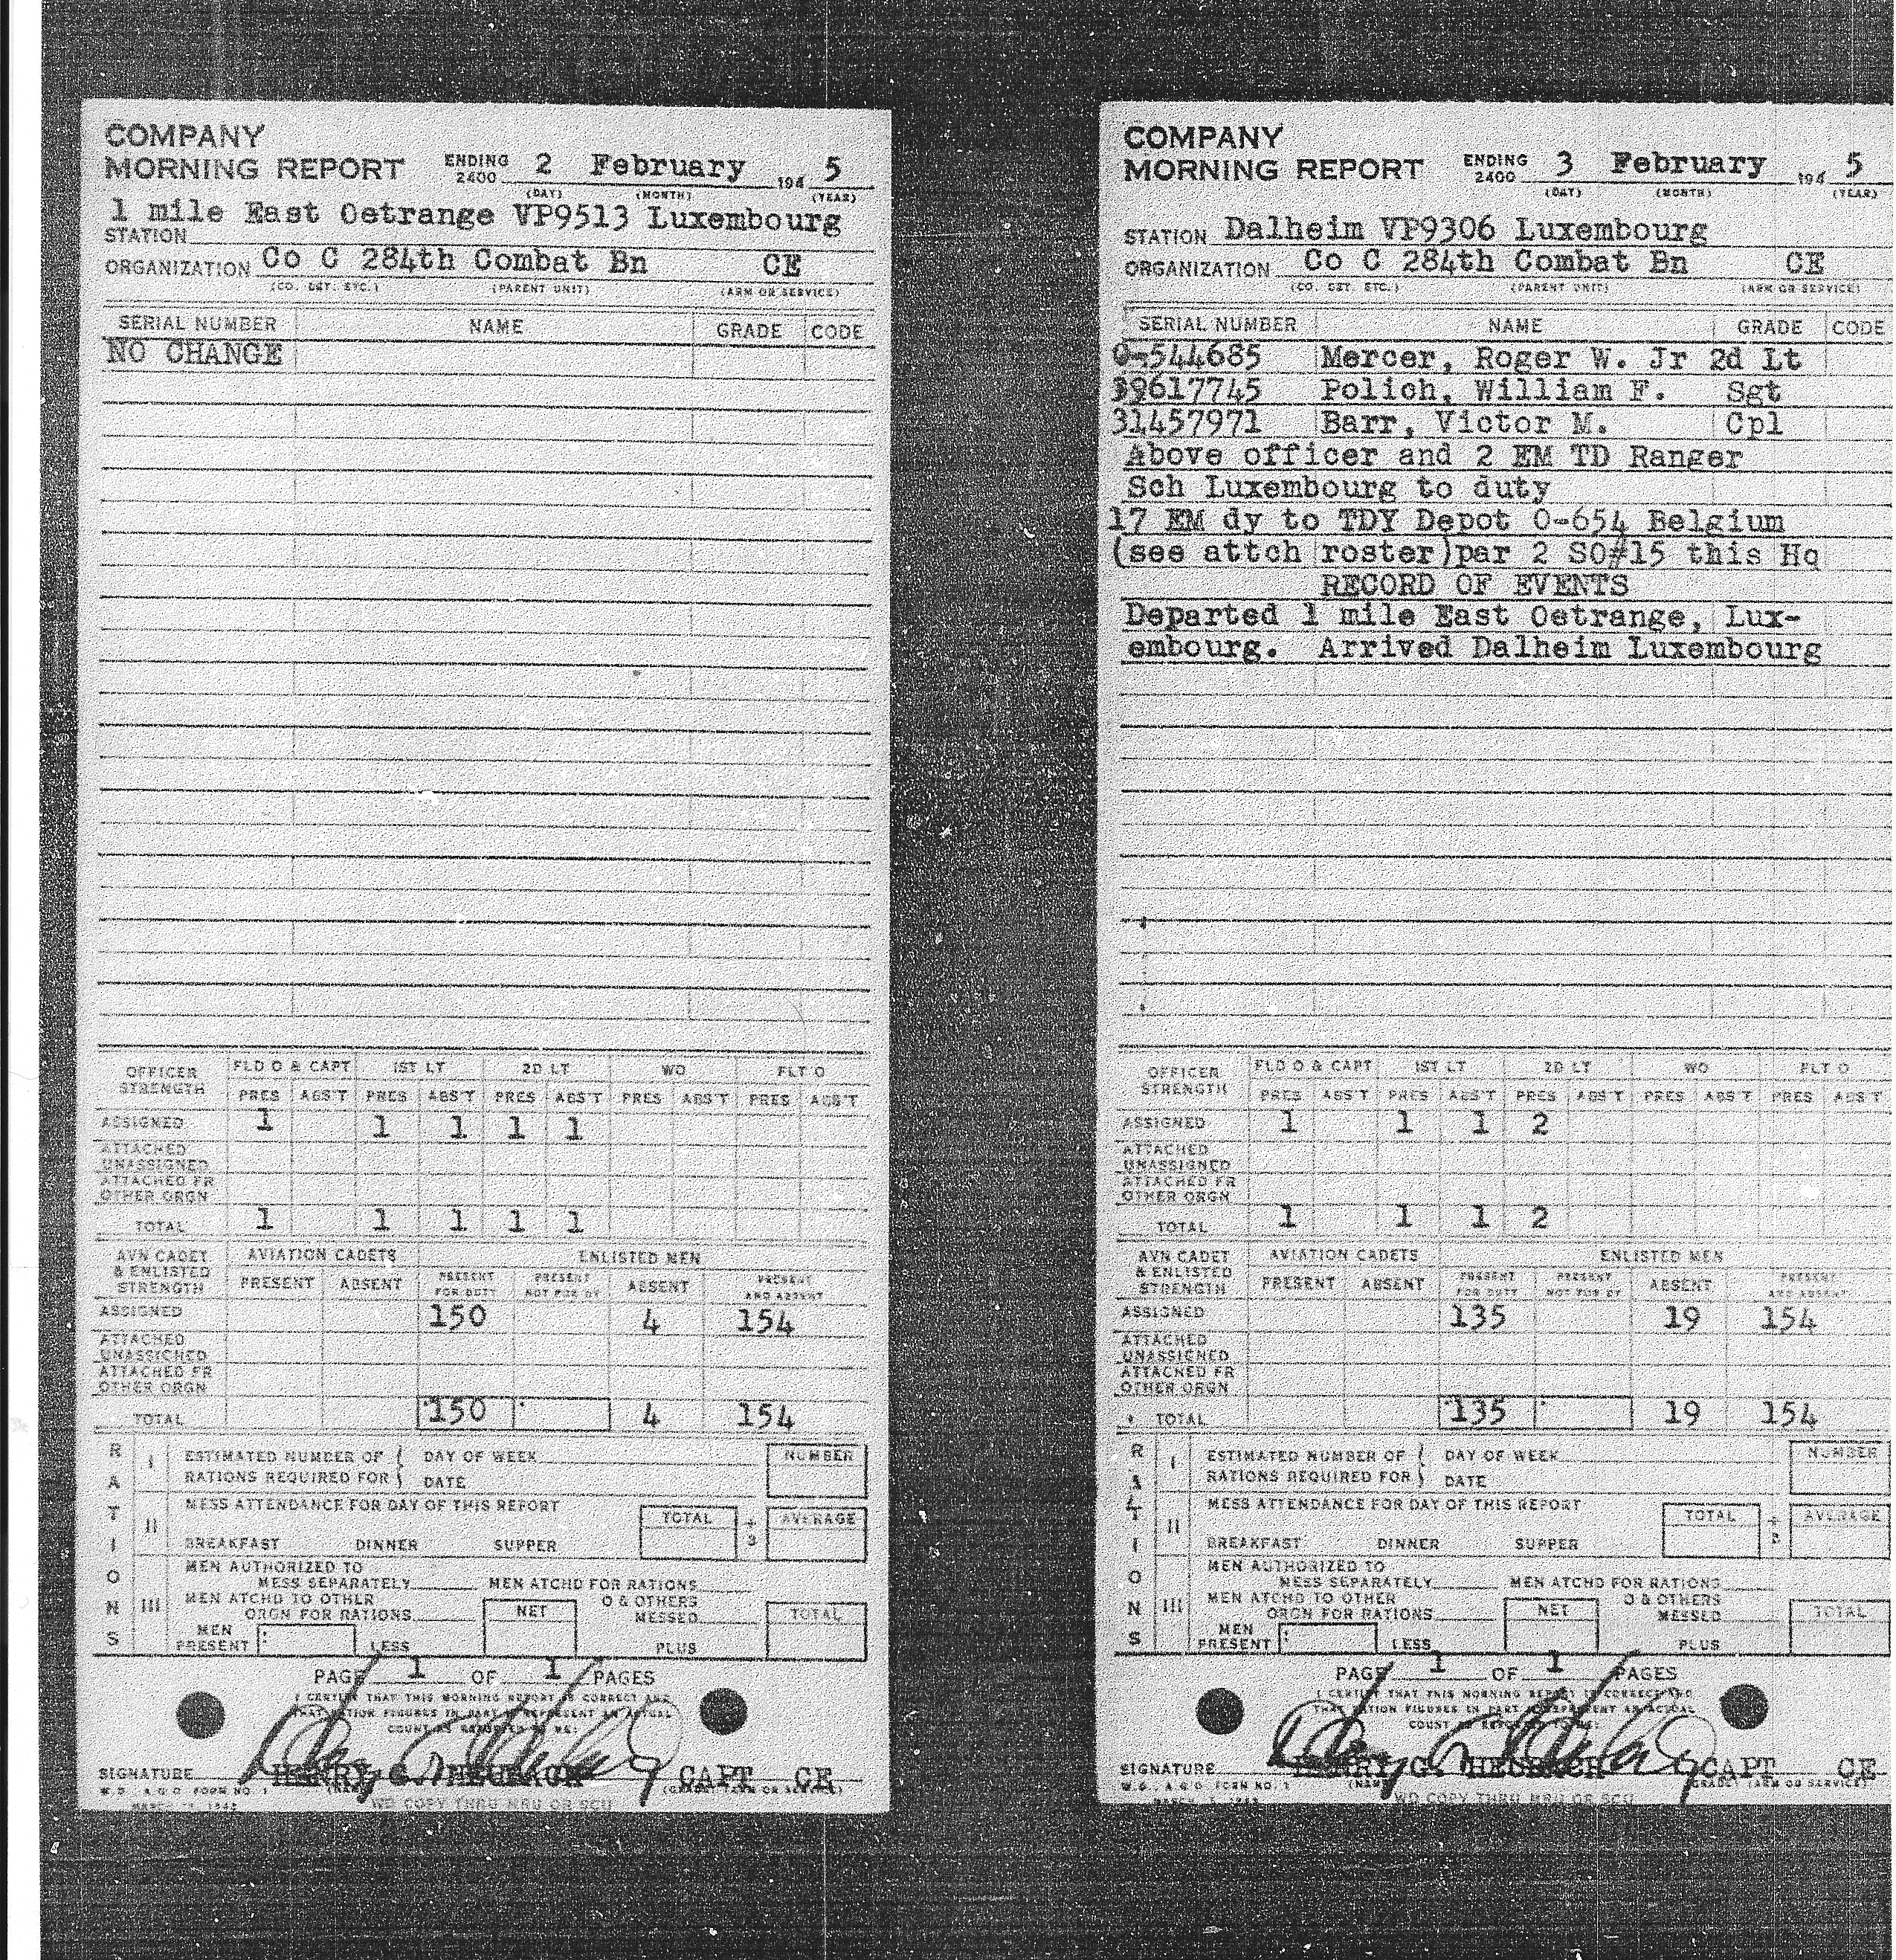 COMPANY
MORNING REPORT ENDING 2400 2 February 194 5
(DAY) (MONTH) (YEAR)
1 mile East Oetrange VP9513 Luxembourg
STATION
ORGANIZATION Co C 284th Combat Bn CE
(CO. DET. ETC.) (PARENT UNIT) (ARM OR SERVICE)
SERIAL NUMBER NAME GRADE CODE
NO CHANGE
OFFICER STRENGTH FLD O & CAPT 1ST LT 2D LT WO FLT O
PRES ABS'T PRES ABS'T PRES ABS'T PRES ABS'T PRES ABS'T
ASSIGNED 1 1 1 1 1
ATTACHED UNASSIGNED
ATTACHED FR OTHER ORGN
TOTAL 1 1 1 1 1
AVN CADET & ENLISTED STRENGTH AVIATION CADETS ENLISTED MEN
PRESENT ABSENT PRESENT FOR DUTY PRESENT NOT FOR DY ABSENT PRESENT AND ABSENT
ASSIGNED 150 4 154
ATTACHED UNASSIGNED
ATTACHED FR OTHER ORGN
TOTAL 150 4 154
RATIONS
I ESTIMATED NUMBER OF DAY OF WEEK NUMBER
RATIONS REQUIRED FOR DATE
II MESS ATTENDANCE FOR DAY OF THIS REPORT TOTAL ÷ 3 AVERAGE
BREAKFAST DINNER SUPPER
III MEN AUTHORIZED TO
MESS SEPARATELY MEN ATCHD FOR RATIONS
MEN ATCHD TO OTHER O & OTHERS
ORGN FOR RATIONS NET MESSED TOTAL
MEN PRESENT LESS PLUS
PAGE 1 OF 1 PAGES
I CERTIFY THAT THIS MORNING REPORT IS CORRECT AND
THAT RATION FIGURES IN PART III REPRESENT AN ACTUAL
COUNT AS REPORTED TO ME:
SIGNATURE HENRY G. HEUBACH CAPT CE
W.D., A.G.O. FORM NO. 1 (NAME) (GRADE) (ARM OR SERVICE)
WD COPY THRU MRU OR SCU
COMPANY
MORNING REPORT ENDING 2400 3 February 194 5
(DAY) (MONTH) (YEAR)
STATION Dalheim VP9306 Luxembourg
ORGANIZATION Co C 284th Combat Bn CE
(CO. DET. ETC.) (PARENT UNIT) (ARM OR SERVICE)
SERIAL NUMBER NAME GRADE CODE
O-544685 Mercer, Roger W. Jr 2d Lt
39617745 Polich, William F. Sgt
31457971 Barr, Victor M. Cpl
Above officer and 2 EM TD Ranger
Sch Luxembourg to duty
17 EM dy to TDY Depot O-654 Belgium
(see attch roster)par 2 SO#15 this Hq
RECORD OF EVENTS
Departed 1 mile East Oetrange, Lux-
embourg. Arrived Dalheim Luxembourg
OFFICER STRENGTH FLD O & CAPT 1ST LT 2D LT WO FLT O
PRES ABS'T PRES ABS'T PRES ABS'T PRES ABS'T PRES ABS'T
ASSIGNED 1 1 1 2
ATTACHED UNASSIGNED
ATTACHED FR OTHER ORGN
TOTAL 1 1 1 2
AVN CADET & ENLISTED STRENGTH AVIATION CADETS ENLISTED MEN
PRESENT ABSENT PRESENT FOR DUTY PRESENT NOT FOR DY ABSENT PRESENT AND ABSENT
ASSIGNED 135 19 154
ATTACHED UNASSIGNED
ATTACHED FR OTHER ORGN
TOTAL 135 19 154
RATIONS
I ESTIMATED NUMBER OF DAY OF WEEK NUMBER
RATIONS REQUIRED FOR DATE
II MESS ATTENDANCE FOR DAY OF THIS REPORT TOTAL ÷ 3 AVERAGE
BREAKFAST DINNER SUPPER
III MEN AUTHORIZED TO
MESS SEPARATELY MEN ATCHD FOR RATIONS
MEN ATCHD TO OTHER O & OTHERS
ORGN FOR RATIONS NET MESSED TOTAL
MEN PRESENT LESS PLUS
PAGE 1 OF 1 PAGES
I CERTIFY THAT THIS MORNING REPORT IS CORRECT AND
THAT RATION FIGURES IN PART III REPRESENT AN ACTUAL
COUNT AS REPORTED TO ME:
SIGNATURE HENRY G. HEUBACH CAPT CE
W.D., A.G.O. FORM NO. 1 (NAME) (GRADE) (ARM OR SERVICE)
WD COPY THRU MRU OR SCU